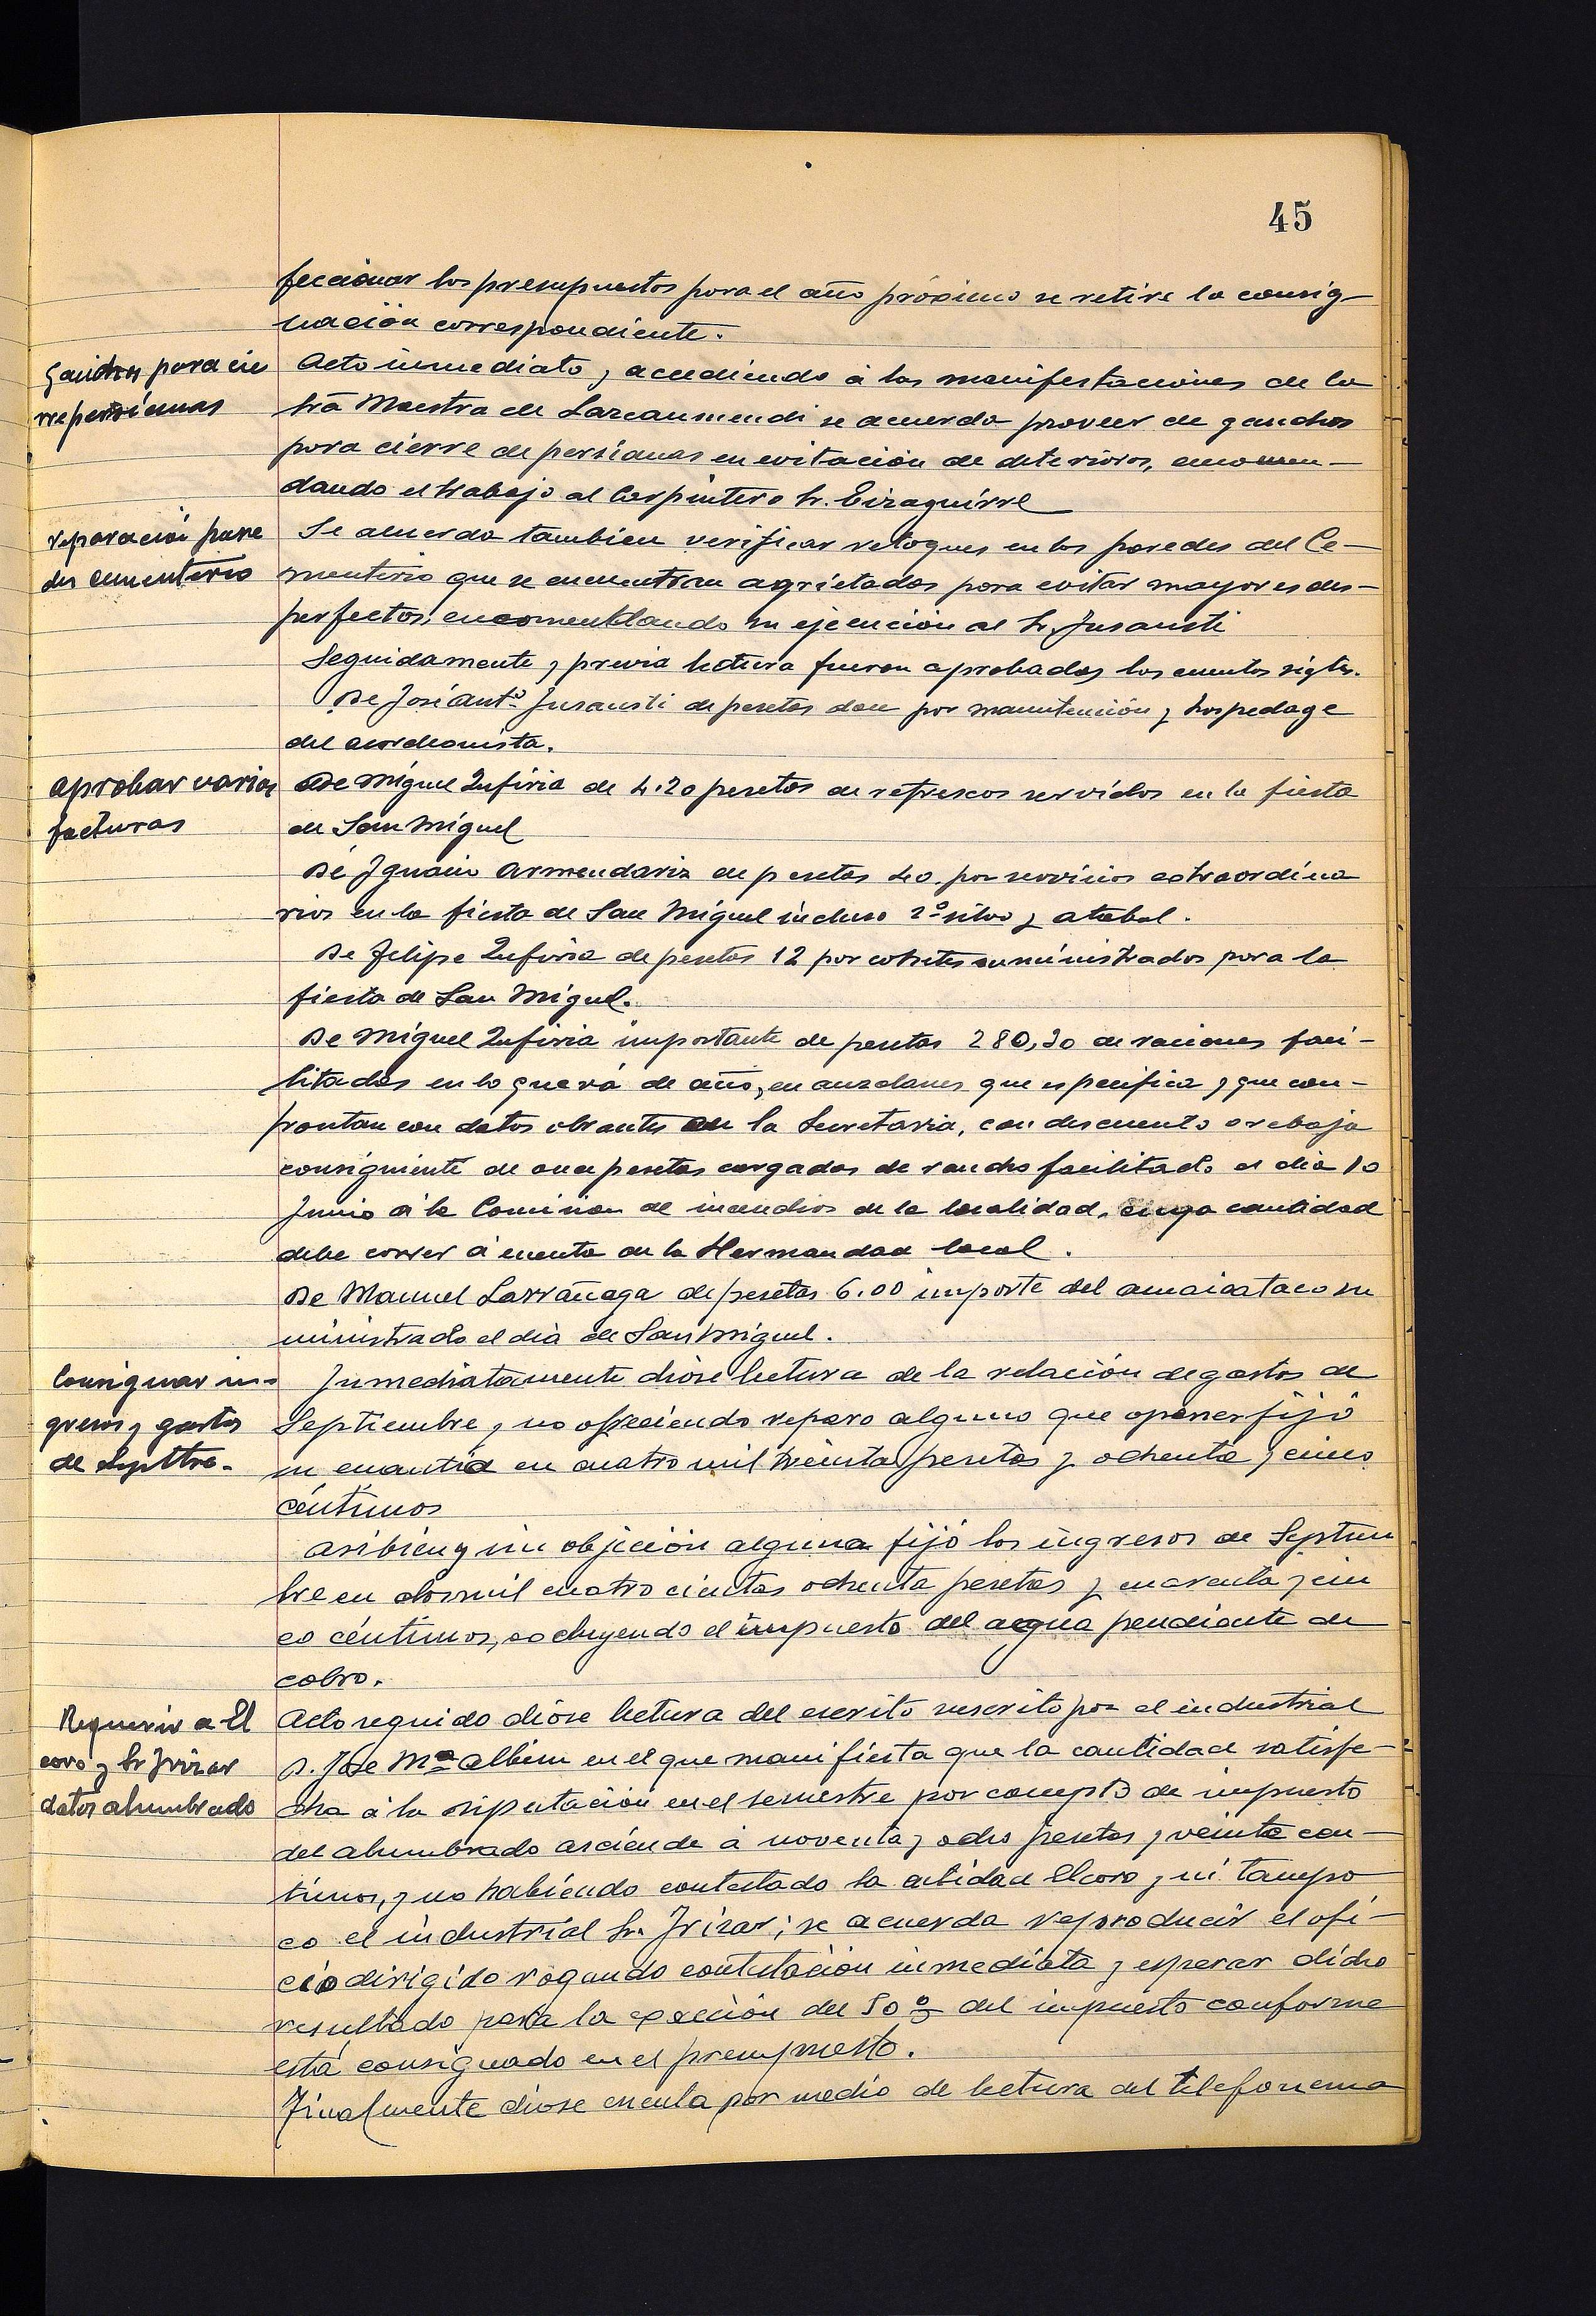 45
feccionar los presupuestos para el año próximo se retire la consig-
nación correspondiente.
Ganchos para cie
rre persianas
Acto inmediato, accediendo á las manifestaciones de la
Srá Maestra de Larcaumendi se acuerda proveer de ganchos
para cierre de persianas en evitación de deterioros, encomen-
dando el trabajo al Carpintero Sr. Eizaguirre
reparación pare
des cementerio
Se acuerda tambien verificar retoques en las paredes del Ce-
menterio que se encuentran agrietadas para evitar mayores des-
perfectos, encomendando su ejecución al Sr. Jusausti
Seguidamente y previa lectura fueron aprobadas las cuentas sigtes.
De José Antº Jusausti de pesetas doce por manutención y hospedage
del acordeonista.
Aprobar varias
facturas
De Miguel Zufiria de 4.20 pesetas de refrescos servidos en la fiesta
de San Miguel
De Ignacio Armendariz de pesetas 40. por servicios extraordina
rios en la fiesta de San Miguel incluso 2º silvo y atabal.
De Felipe Zufiria de pesetas 12 por cohetes suministrados para la
fiesta de San Miguel.
De Miguel Zufiria importante de pesetas 280,30 de raciones faci-
litadas en lo que vá de año, en anzolanes que especifica y que con-
frontan con datos obrantes en la Secretaria, con descuento o rebaja
consiguiente de once pesetas cargadas de rancho facilitado el dia 10
Junio á la Comision de incendios de la localidad, cuya cantidad
debe correr á cuenta de la Hermandad local.
De Manuel Larrañaga de pesetas 6.00 importe del amaicataco su
ministrado el dia de San Miguel.
Consignar in-
gresos y gastos
de Septbre.
Inmediatamente dióse lectura de la relación de gastos de
Septiembre y no ofreciendo reparo alguno que oponer fijó
su cuantia en cuatro mil treinta pesetas y ochenta y cinco
céntimos
Asibien y sin objeción alguna fijó los ingresos de Septiem
bre en dos mil cuatro cientas ochenta pesetas y cuarenta y cin
co céntimos, excluyendo el impuesto del agua pendiente de
cobro.
Requerir a El
coro y Sr Irizar
datos alumbrado
Acto seguido dióse lectura del escrito suscrito por el industrial
D. Jose Mª Albisu en el que manifiesta que la cantidad satisfe-
cha á la Diputación en el semestre por concepto de impuesto
del alumbrado asciende á noventa y ocho pesetas y veinte cen-
timos, y no habiendo contestado la entidad Elcoro y ni tampo
co el industrial Sr. Irizar; se acuerda reproducir el ofi-
cio dirigido rogando contestación inmediata y esperar dicho
resultado para la exacción del 50 % del impuesto conforme
está consignado en el presupuesto.
Finalmente dióse cuenta por medio de lectura del telefonema